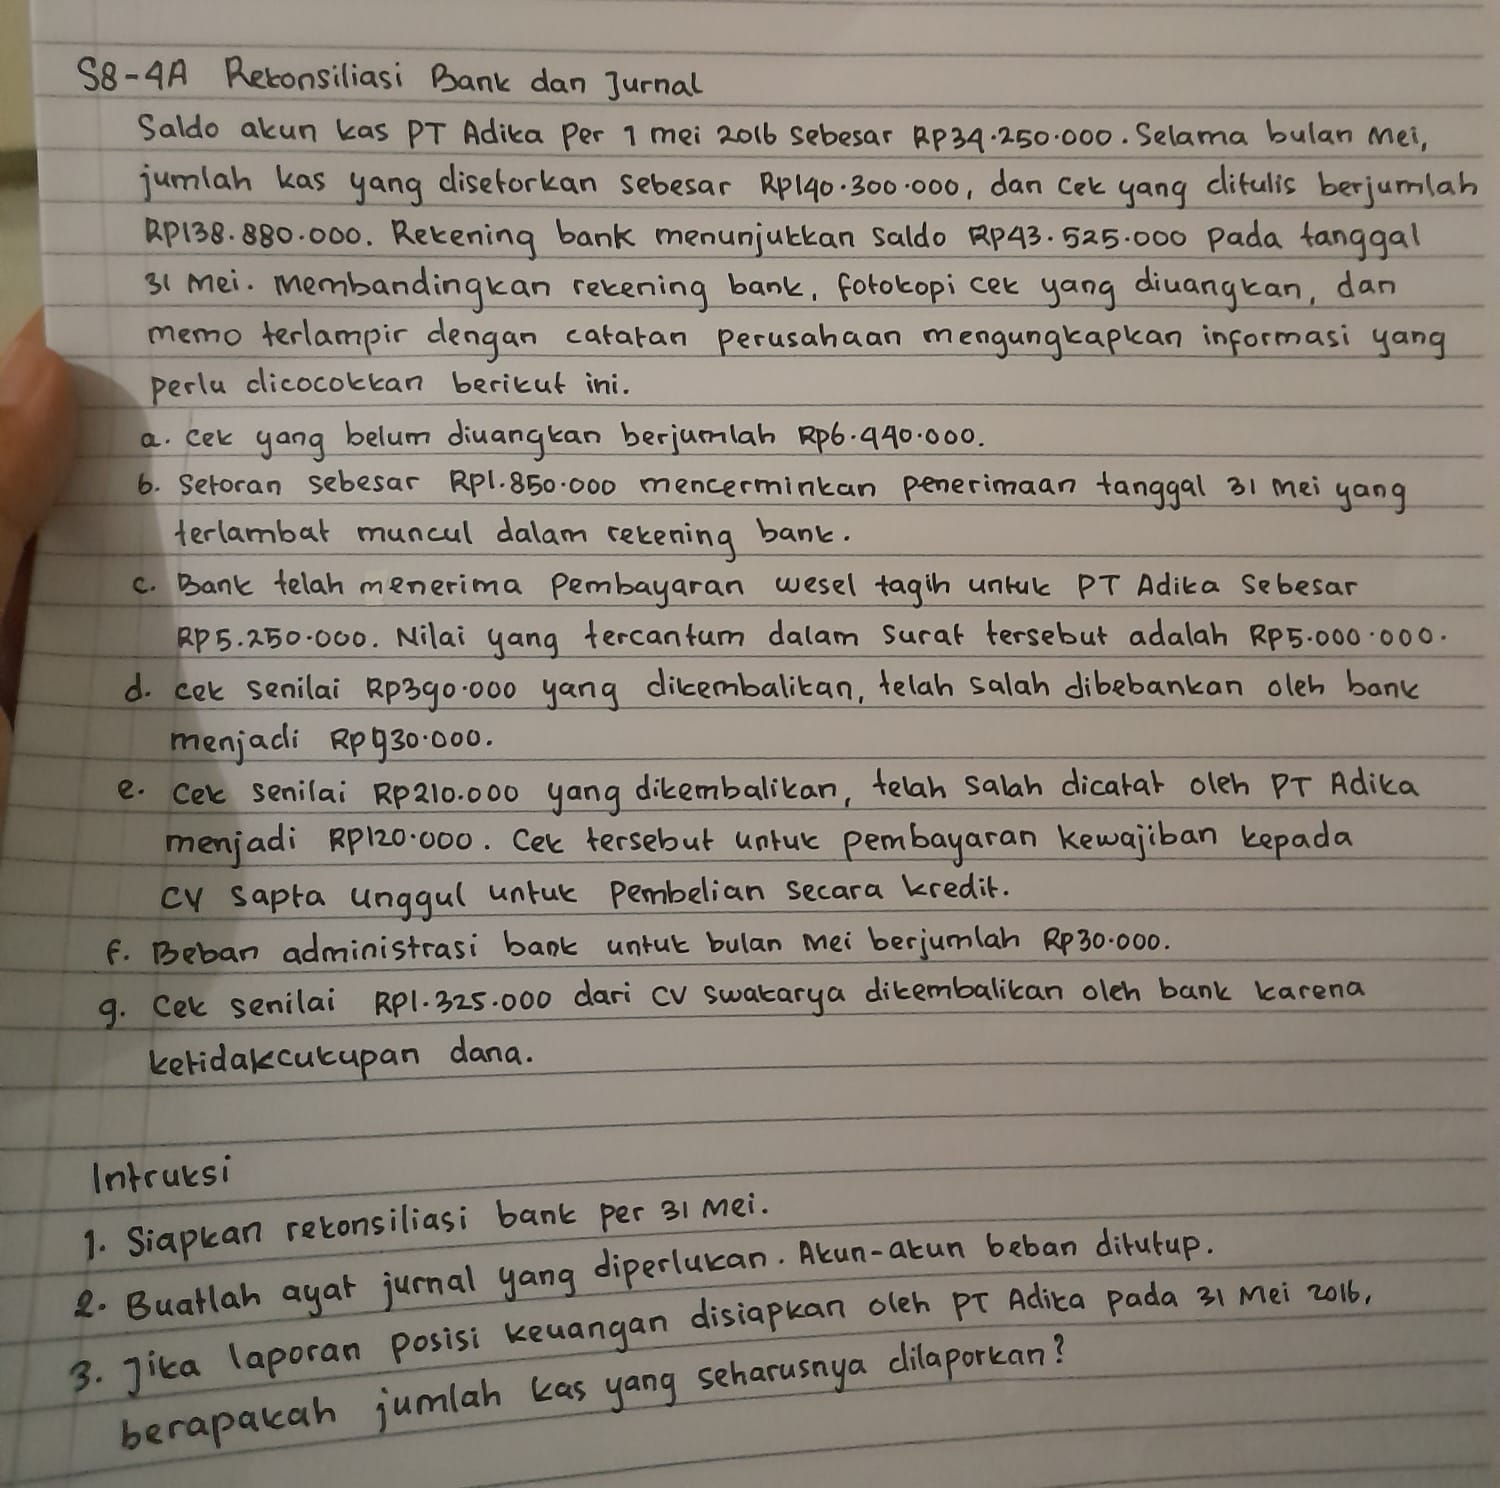 S8-4A Rekonsiliasi Bank dan Jurnal
Saldo akun kas PT Adika Per 1 mei 2016 sebesar RP34.250.000. Selama bulan Mei,
jumlah kas yang disetorkan sebesar RP140.300.000, dan cek yang ditulis berjumlah
RP138.880.000. Rekening bank menunjukkan saldo RP43.525.000 pada tanggal
31 mei. membandingkan rekening bank, fotokopi cek yang diuangkan, dan
memo terlampir dengan catatan perusahaan mengungkapkan informasi yang
perlu dicocokkan berikut ini.
a. cek yang belum diuangkan berjumlah Rp6.440.000.
b. Setoran sebesar RP1.850.000 mencerminkan penerimaan tanggal 31 mei yang
terlambat muncul dalam rekening bank.
c. Bank telah menerima pembayaran wesel tagih untuk PT Adika sebesar
RP5.250.000. Nilai yang tercantum dalam surat tersebut adalah RP5.000.000.
d. cek senilai RP390.000 yang dikembalikan, telah salah dibebankan oleh bank
menjadi Rp930.000.
e. cek senilai RP210.000 yang dikembalikan, telah salah dicatat oleh PT Adika
menjadi RP120.000. Cek tersebut untuk pembayaran kewajiban kepada
CV Sapta Unggul untuk pembelian secara kredit.
f. Beban administrasi bank untuk bulan mei berjumlah Rp30.000.
g. Cek senilai RP1.325.000 dari CV swakarya dikembalikan oleh bank karena
ketidakcukupan dana.
Intruksi
1. Siapkan rekonsiliasi bank per 31 Mei.
2. Buatlah ayat jurnal yang diperlukan. Akun-akun beban ditutup.
3. Jika laporan posisi keuangan disiapkan oleh PT Adika pada 31 Mei 2016,
berapakah jumlah kas yang seharusnya dilaporkan?